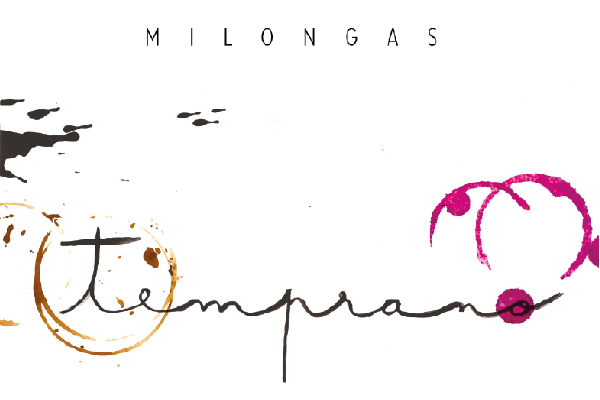 MILONGAS
temprano